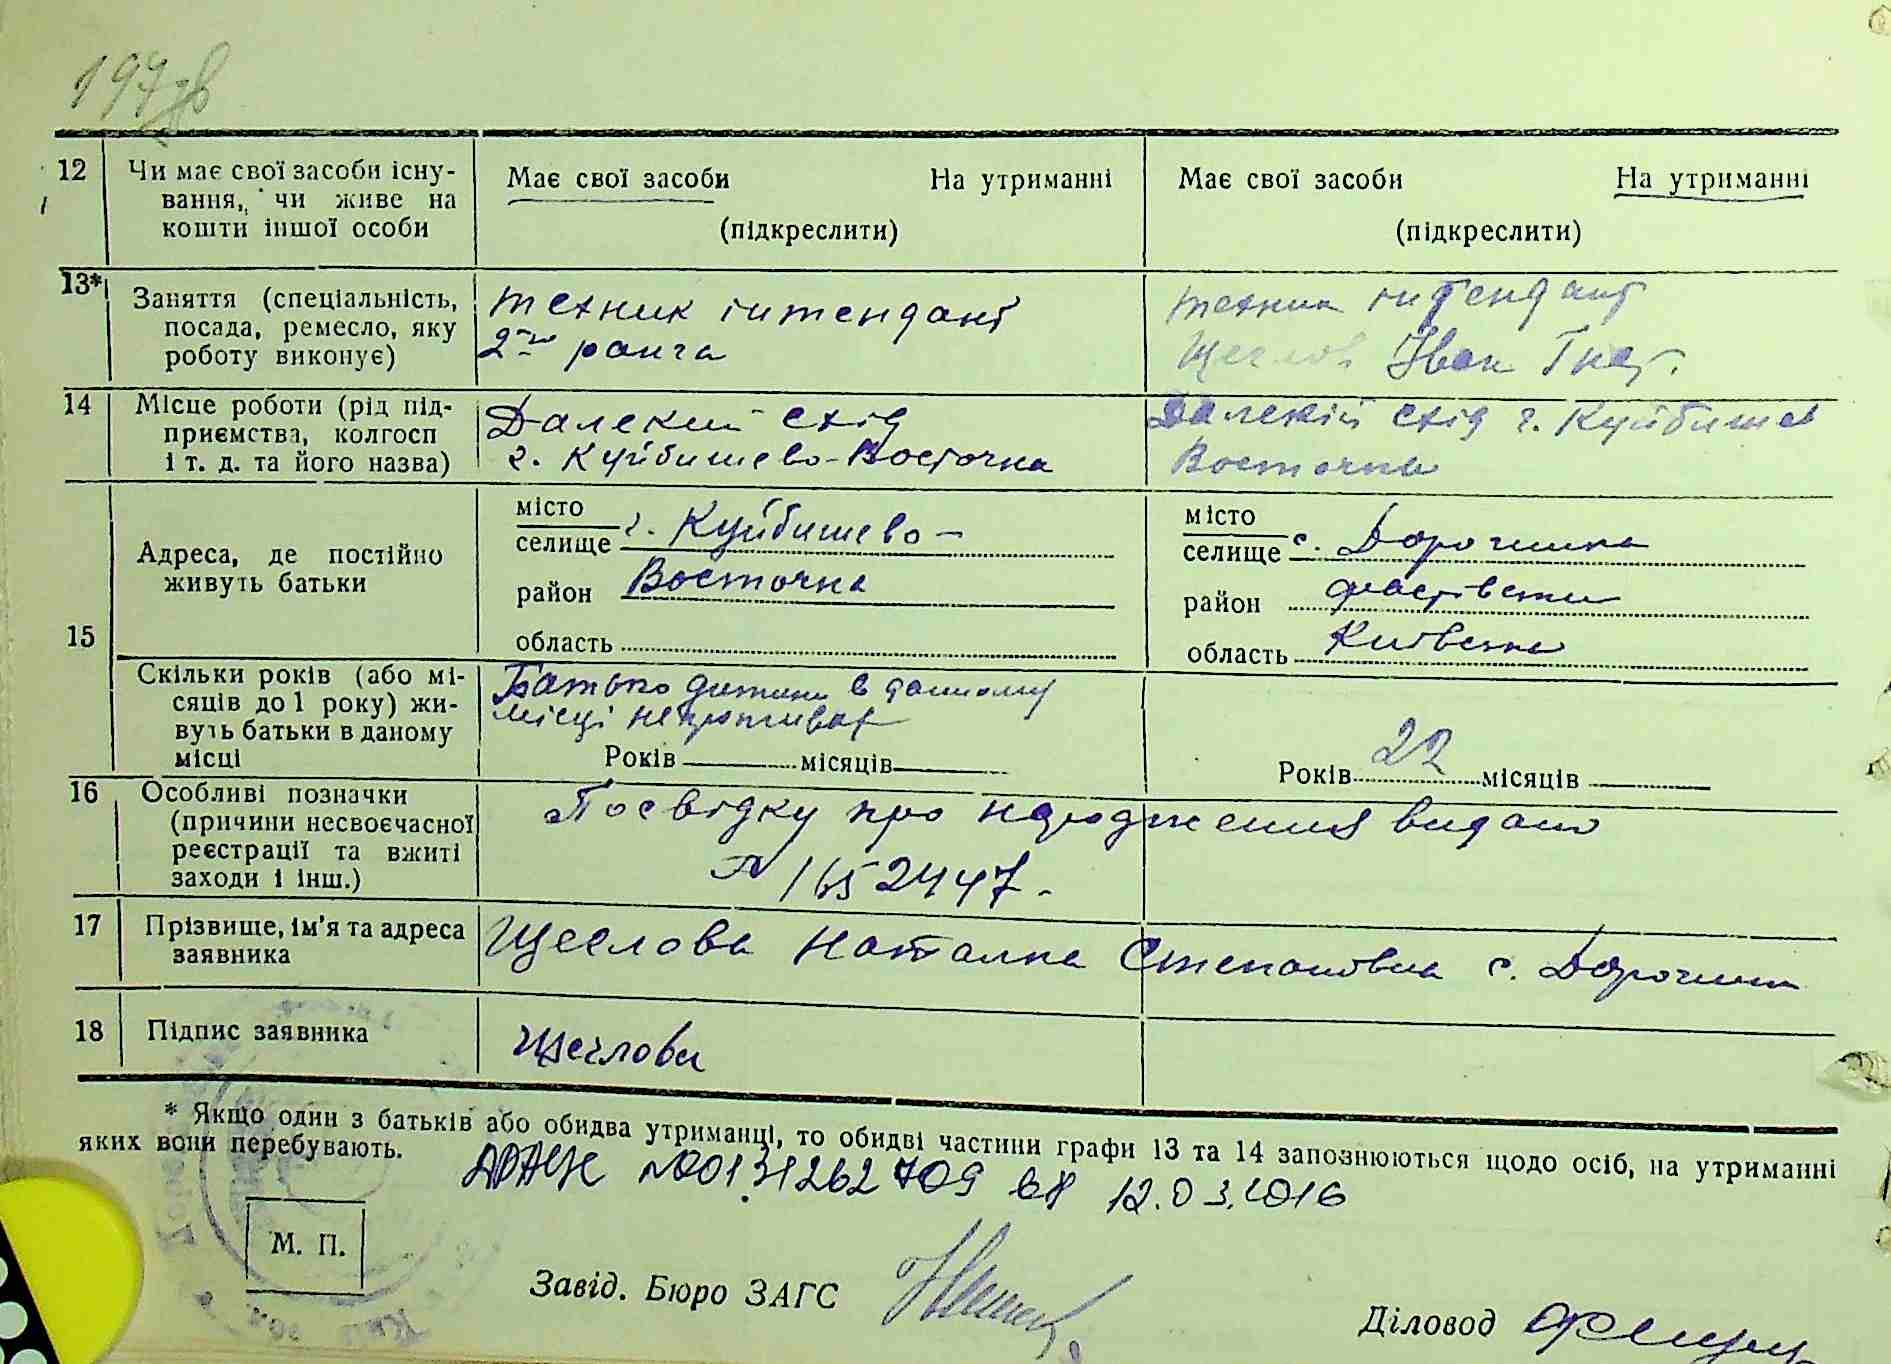 12 Чи має свої засоби існу- Має свої засоби На утриманні Має свої засоби На утриманні
вання, чи живе на
кошти іншої особи (підкреслити) (підкреслити)
13* Заняття (спеціальність, техник інтендант техник інтендант
посада, ремесло, яку 2го ранга Щеглов Іван Гнат.
роботу виконує)
14 Місце роботи (рід під- Далекий схід Далекій схід г. Куйбишев
приємства, колгосп г. Куйбишево-Восточна Восточна
і т. д. та його назва)
15 Адреса, де постійно живуть батьки
місто
селище г. Куйбишево- 
район Восточна
область
місто
селище с. Дорогинка
район Фастівський
область Київська
Скільки років (або мі- Батько дитини в данному
сяців до 1 року) жи- місці непроживає
вуть батьки в даному
місці Років місяців Років 22 місяців
16 Особливі позначки Посвідку про народження видано
(причини несвоєчасної
реєстрації та вжиті № 1652447.
заходи і інш.)
17 Прізвище, ім'я та адреса Щеглова Наталка Степановна с. Дорогинка
заявника
18 Підпис заявника Щеглова
* Якщо один з батьків або обидва утриманці, то обидві частини графи 13 та 14 запознюються щодо осіб, на утриманні
яких вони перебувають.
№00131262709 від 12.03.2016
М. П.
Завід. Бюро ЗАГС
Діловод